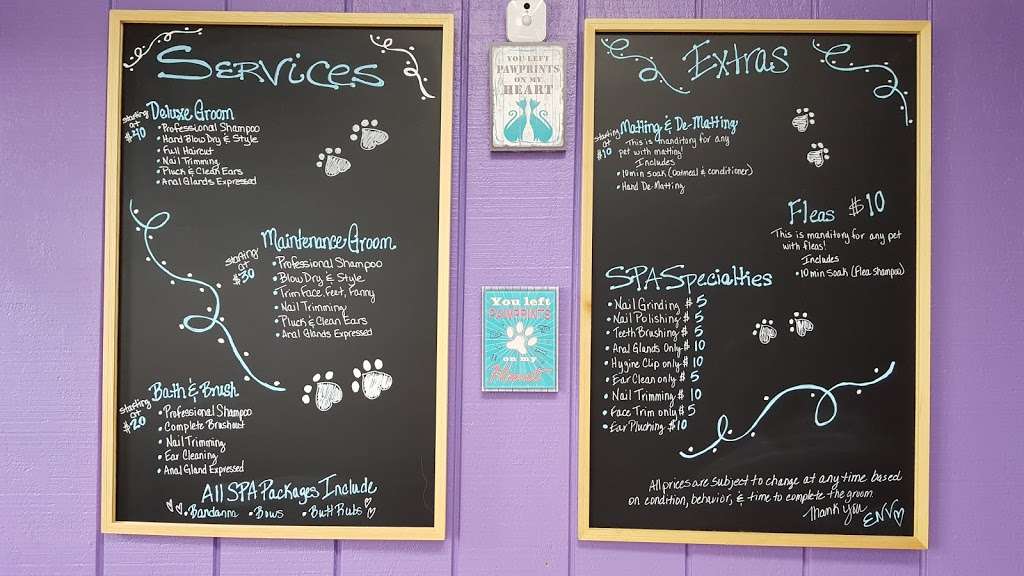 Services
Deluxe Groom
starting
at
$40
• Professional Shampoo
• Hard Blow Dry & Style
• Full Haircut
• Nail Trimming
• Pluck & Clean Ears
• Anal Glands Expressed
Maintenance Groom
starting
at
$30
• Professional Shampoo
• Blow Dry & Style
• Trim Face, Feet, Fanny
• Nail Trimming
• Pluck & Clean Ears
• Anal Glands Expressed
Bath & Brush
starting
at
$20
• Professional Shampoo
• Complete Brushout
• Nail Trimming
• Ear Cleaning
• Anal Gland Expressed
All SPA Packages Include
• Bandanna • Bows • Butt Rubs
YOU LEFT
PAWPRINTS
ON MY
HEART
You left
PAWPRINTS
on my
Heart
Extras
Matting & De-Matting
starting
at
$10
This is manditory for any
pet with matting!
Includes
• 10 min soak (Oatmeal & conditioner)
• Hand De-Matting
Fleas $10
This is manditory for any pet
with fleas!
Includes
• 10 min soak (Flea shampoo)
SPA Specialties
• Nail Grinding $ 5
• Nail Polishing $ 5
• Teeth Brushing $ 5
• Anal Glands Only $ 10
• Hygine Clip only $ 10
• Ear Clean only $ 5
• Nail Trimming $ 10
• Face Trim only $ 5
• Ear Plucking $10
All prices are subject to change at any time based
on condition, behavior, & time to complete the groom
Thank You
ENV